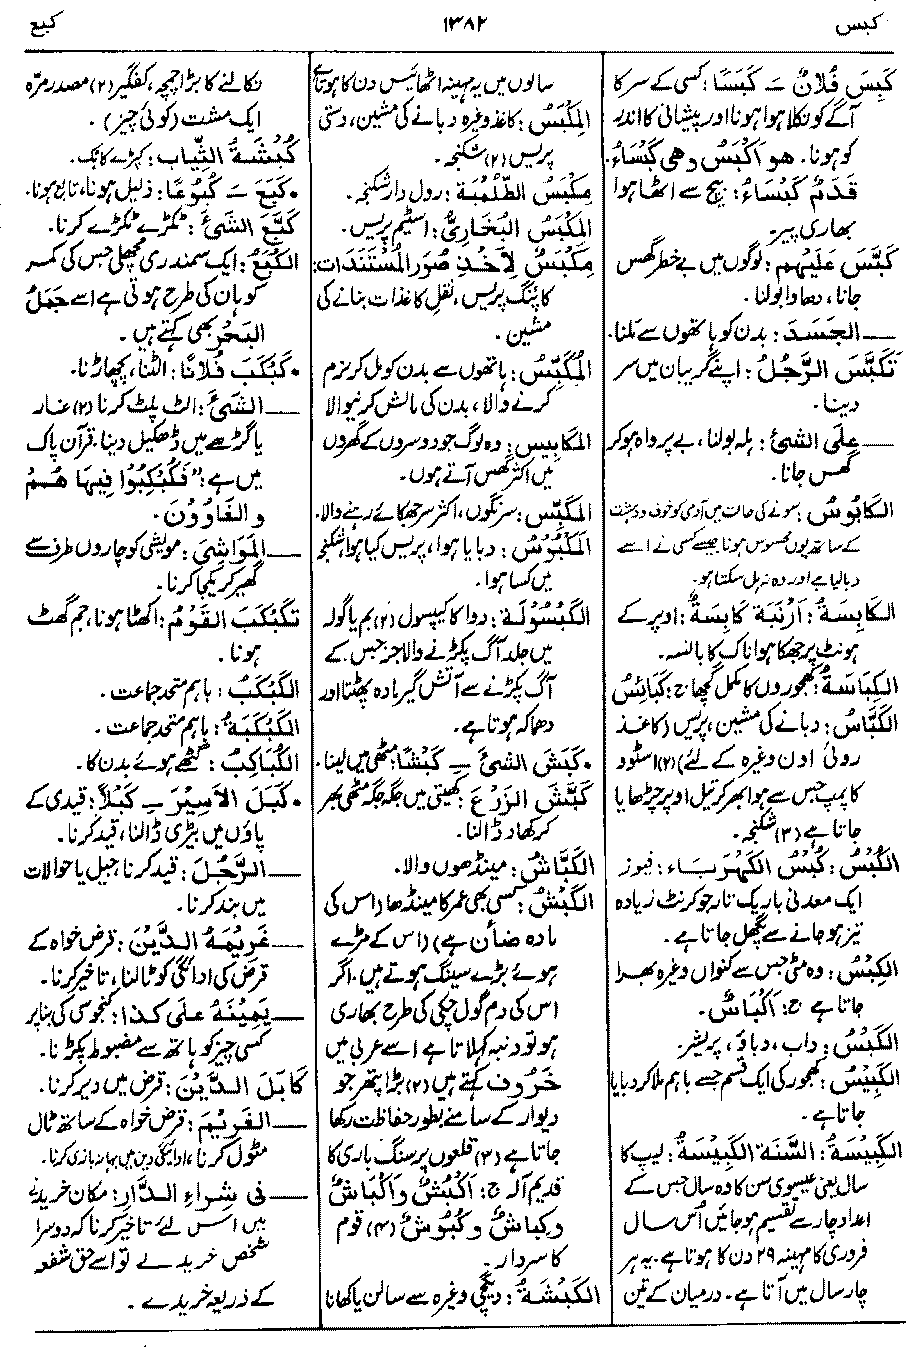 کبس
۱۳۸۲
کبع
کَبِسَ فُلَانٌ ـَ کَبَسًا: کسی کے سر کا
آگے کو نکلا ہوا ہونا اور پیشانی کا اندر
کو ہونا۔ ھو اَکْبَسُ وھی کَبْسَاءُ۔
قَدَمٌ کَبْسَاءُ: بیچ سے اٹھا ہوا
بھاری پیر۔
کَبَّسَ عَلَیْهِم: لوگوں میں بے خطر گھس
جانا، دھاوا بولنا۔
ــــ الجَسَدَ: بدن کو ہاتھوں سے ملنا۔
تَکَبَّسَ الرَّجُلُ: اپنے گریبان میں سر
دینا۔
ــــ عَلَی الشیْءِ: ہلہ بولنا، بے پرواہ ہوکر
گھس جانا۔
الکَابُوسُ: سونے کی حالت میں آدمی کو خوف و دہشت
کے ساتھ یوں محسوس ہونا جیسے کسی نے اسے
دبا لیا ہے اور وہ نہ ہل سکتا ہو۔
الکَابِسَةُ: اَرْنَبَةٌ کَابِسَةٌ: اوپر کے
ہونٹ پر جھکا ہوا ناک کا بانسہ۔
الکِبَاسَةُ: کھجوروں کا مکمل گچھا ج: کَبَائِسُ
الکَبَّاسُ: دبانے کی مشین، پریس (کاغذ
روئی اون وغیرہ کے لئے) (۲) اسٹوو
کا پمپ جس سے ہوا بھر کر تیل اوپر چڑھایا
جاتا ہے (۳) شکنجہ۔
الکُبْسُ: کُبْسُ الکَهْرَبَاء: فیوز
ایک معدنی باریک تار جو کرنٹ زیادہ
تیز ہو جانے سے پگھل جاتا ہے۔
الکِبْسُ: وہ مٹی جس سے کنواں وغیرہ بھرا
جاتا ہے ج: اَکْبَاسٌ۔
الکَبْسُ: داب، دباؤ، پریشر۔
الکَبِیْسُ: کھجور کی ایک قسم جسے باہم ملا کر دبایا
جاتا ہے۔
الکَبِیْسَةُ: السَّنَة الکَبِیْسَةُ: لیپ کا
سال یعنی عیسوی سن کا وہ سال جس کے
اعداد چار سے تقسیم ہو جائیں اُس سال
فروری کا مہینہ ۲۹ دن کا ہوتا ہے۔ یہ ہر
چار سال میں آتا ہے۔ درمیان کے تین
سالوں میں یہ مہینہ اٹھائیس دن کا ہوتا ہے
المِکْبَسُ: کاغذ وغیرہ دبانے کی مشین، دستی
پریس (۲) شکنجہ۔
مِکْبَسُ الطُّلُمْبَة: رول دار شکنجہ۔
المِکْبَسُ البُخَارِیُّ: اسٹیم پریس۔
مِکْبَسٌ لِاَخْذِ صُوَرِ المُسْتَنَدَات:
کاپنگ پریس، نقل کاغذات بنانے کی
مشین۔
المُکَبِّسُ: ہاتھوں سے بدن کو مل کر نرم
کرنے والا، بدن کی مالش کرنیوالا
المُکَابِیس: وہ لوگ جو دوسروں کے گھروں
میں اکثر گھس آتے ہوں۔
المُکَبِّس: سرنگوں، اکثر سر جھکائے رہنے والا۔
المَکْبُوْسُ: دبایا ہوا، پریس کیا ہوا، شکنجہ
میں کسا ہوا۔
الکَبْسُوْلَة: دوا کا کیپسول (۲) بم یا گولہ
میں جلد آگ پکڑنے والا جز جس کے
آگ پکڑنے سے آتش گیر مادہ پھٹتا اور
دھماکہ ہوتا ہے۔
• کَبَشَ الشیْءَ ـِ کَبْشًا: مٹھی میں لینا۔
کَبَّشَ الزَّرْعَ: کھیتی میں جگہ جگہ مٹھی بھر
کر کھاد ڈالنا۔
الکَبَّاشُ: مینڈھوں والا۔
الکَبْشُ: کسی بھی عمر کا مینڈھا (اس کی
مادہ ضأن ہے) (اس کے مڑے
ہوئے بڑے سینگ ہوتے ہیں، اگر
اس کی دم گول چکی کی طرح بھاری
ہو تو دنبہ کہلاتا ہے اسے عربی میں
خَرُوف کہتے ہیں (۲) بڑا پتھر جو
دیوار کے سامنے بطور حفاظت رکھا
جاتا ہے (۳) قلعوں پر سنگ باری کا
قدیم آلہ ج: اَکْبُشٌ واَکْبَاشٌ
وکِبَاشٌ و کُبُوْشٌ (۴) قوم
کا سردار۔
الکَبْشَةُ: دیگچی وغیرہ سے سالن یا کھانا
نکالنے کا بڑا چمچہ، کفگیر (۲) مصدر مرّہ
ایک مشت (کوئی چیز)۔
کُبْشَةُ الثِّیَاب: کپڑے کا ہک۔
• کَبَعَ ـَ کُبُوعًا: ذلیل ہونا، تابع ہونا۔
کَبَّعَ الشیْءَ: ٹکڑے ٹکڑے کرنا۔
الکُبَعُ: ایک سمندری مچھلی جس کی کمر
کوہان کی طرح ہوتی ہے اسے جَمَلُ
البَحْرِ بھی کہتے ہیں۔
• کَبْکَبَ فُلَانًا: الٹنا، پچھاڑنا۔
ــــ الشیْءَ: الٹ پلٹ کرنا (۲) غار
یا گڑھے میں ڈھکیل دینا، قرآن پاک
میں ہے: "فَکُبْکِبُوا فِیهَا هُمْ
وَ الغَاوُوْنَ۔
ــــ المَوَاشِیَ: مویشی کو چاروں طرف سے
گھیر کر یکجا کرنا۔
تَکَبْکَبَ القَوْمُ: اکٹھا ہونا، جم گھٹ
ہونا۔
الکَبْکَبُ: باہم متحد جماعت۔
الکَبْکَبَةُ: باہم متحد جماعت۔
الکُبَاکِبُ: گٹھے ہوئے بدن کا۔
• کَبَلَ الاَسِیْرَ ـِ کَبْلًا: قیدی کے
پاؤں میں بیڑی ڈالنا، قید کرنا۔
ــــ الرَّجُلَ: قید کرنا، جیل یا حوالات
میں بند کرنا۔
ــــ غَرِیْمَهُ الدَّیْنَ: قرض خواہ کے
قرض کی ادائگی کو ٹالنا، تاخیر کرنا۔
ــــ یَمِیْنَهُ عَلَی کَذَا: کنجوسی کی بنا پر
کسی چیز کو ہاتھ سے مضبوط پکڑنا۔
کَابَلَ الدَّیْنَ: قرض میں دیر کرنا۔
ــــ الغَرِیْمَ: قرض خواہ کے ساتھ ٹال
مٹول کرنا، ادائیگی دین میں بہانہ بازی کرنا۔
ــــ فی شِرَاءِ الدَّارِ: مکان خریدنے
میں اس لئے تاخیر کرنا کہ دوسرا
شخص خرید لے تو اسے حق شفعہ
کے ذریعہ خریدے۔